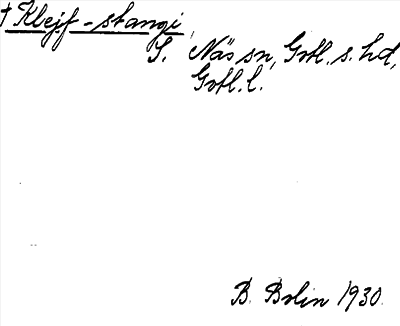 † Klejf-stangi,
S. Näs sn, Gotl. s. hd,
Gotl. l.
B. Bolin 1930.